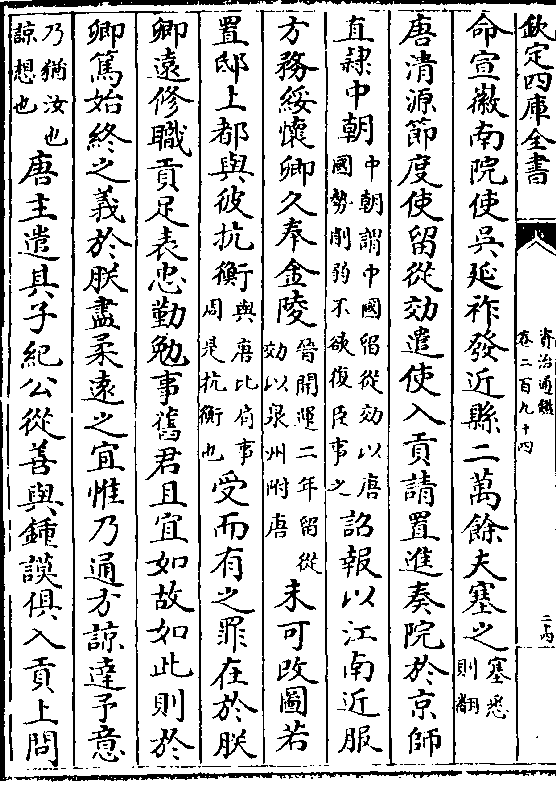 欽定四庫全書
資治通鑑
卷二百九十四
二六
命宣徽南院使吳延祚發近縣二萬餘夫塞之塞悉則翻
唐清源節度使留從効遣使入貢請置進奏院於京師
直隸中朝中朝謂中國留從効以唐國勢削弱不欲復臣事之詔報以江南近服
方務綏懷卿久奉金陵晉開運二年留從効以泉州附唐未可改圖若
置邸上都與彼抗衡與唐比肩事周是抗衡也受而有之罪在於朕
卿遠修職貢足表忠勤勉事舊君且宜如故如此則於
卿篤始終之義於朕盡柔遠之宜惟乃通方諒達予意
乃猶汝也諒想也唐主遣其子紀公從善與鍾謨俱入貢上問